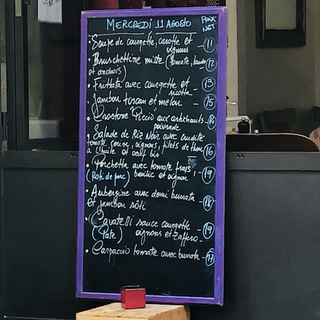 MERCREDI 11 AGOSTO
PRIX NET
• Soupe de courgette, carotte et oignons - 11
• Bruschettine mixte (tomate,
et anchois)
• Frittata avec courgette et ricotta - 13
• Jambon toscan et melon - 15
• Crostone Piccio aux artichauts
• Salade de Riz Noir avec
tomate, filets de thon
à l'huile et oeuf bio - 16
• Porchetta avec tomate frais,
(Roti de porc) basilic et oignon - 19
• Aubergine avec demi burrata
et jambon rôti - 18
• Cavatelli sauce courgette
(Pâte) oignons et - 19
• Carpaccio tomate avec burrata -